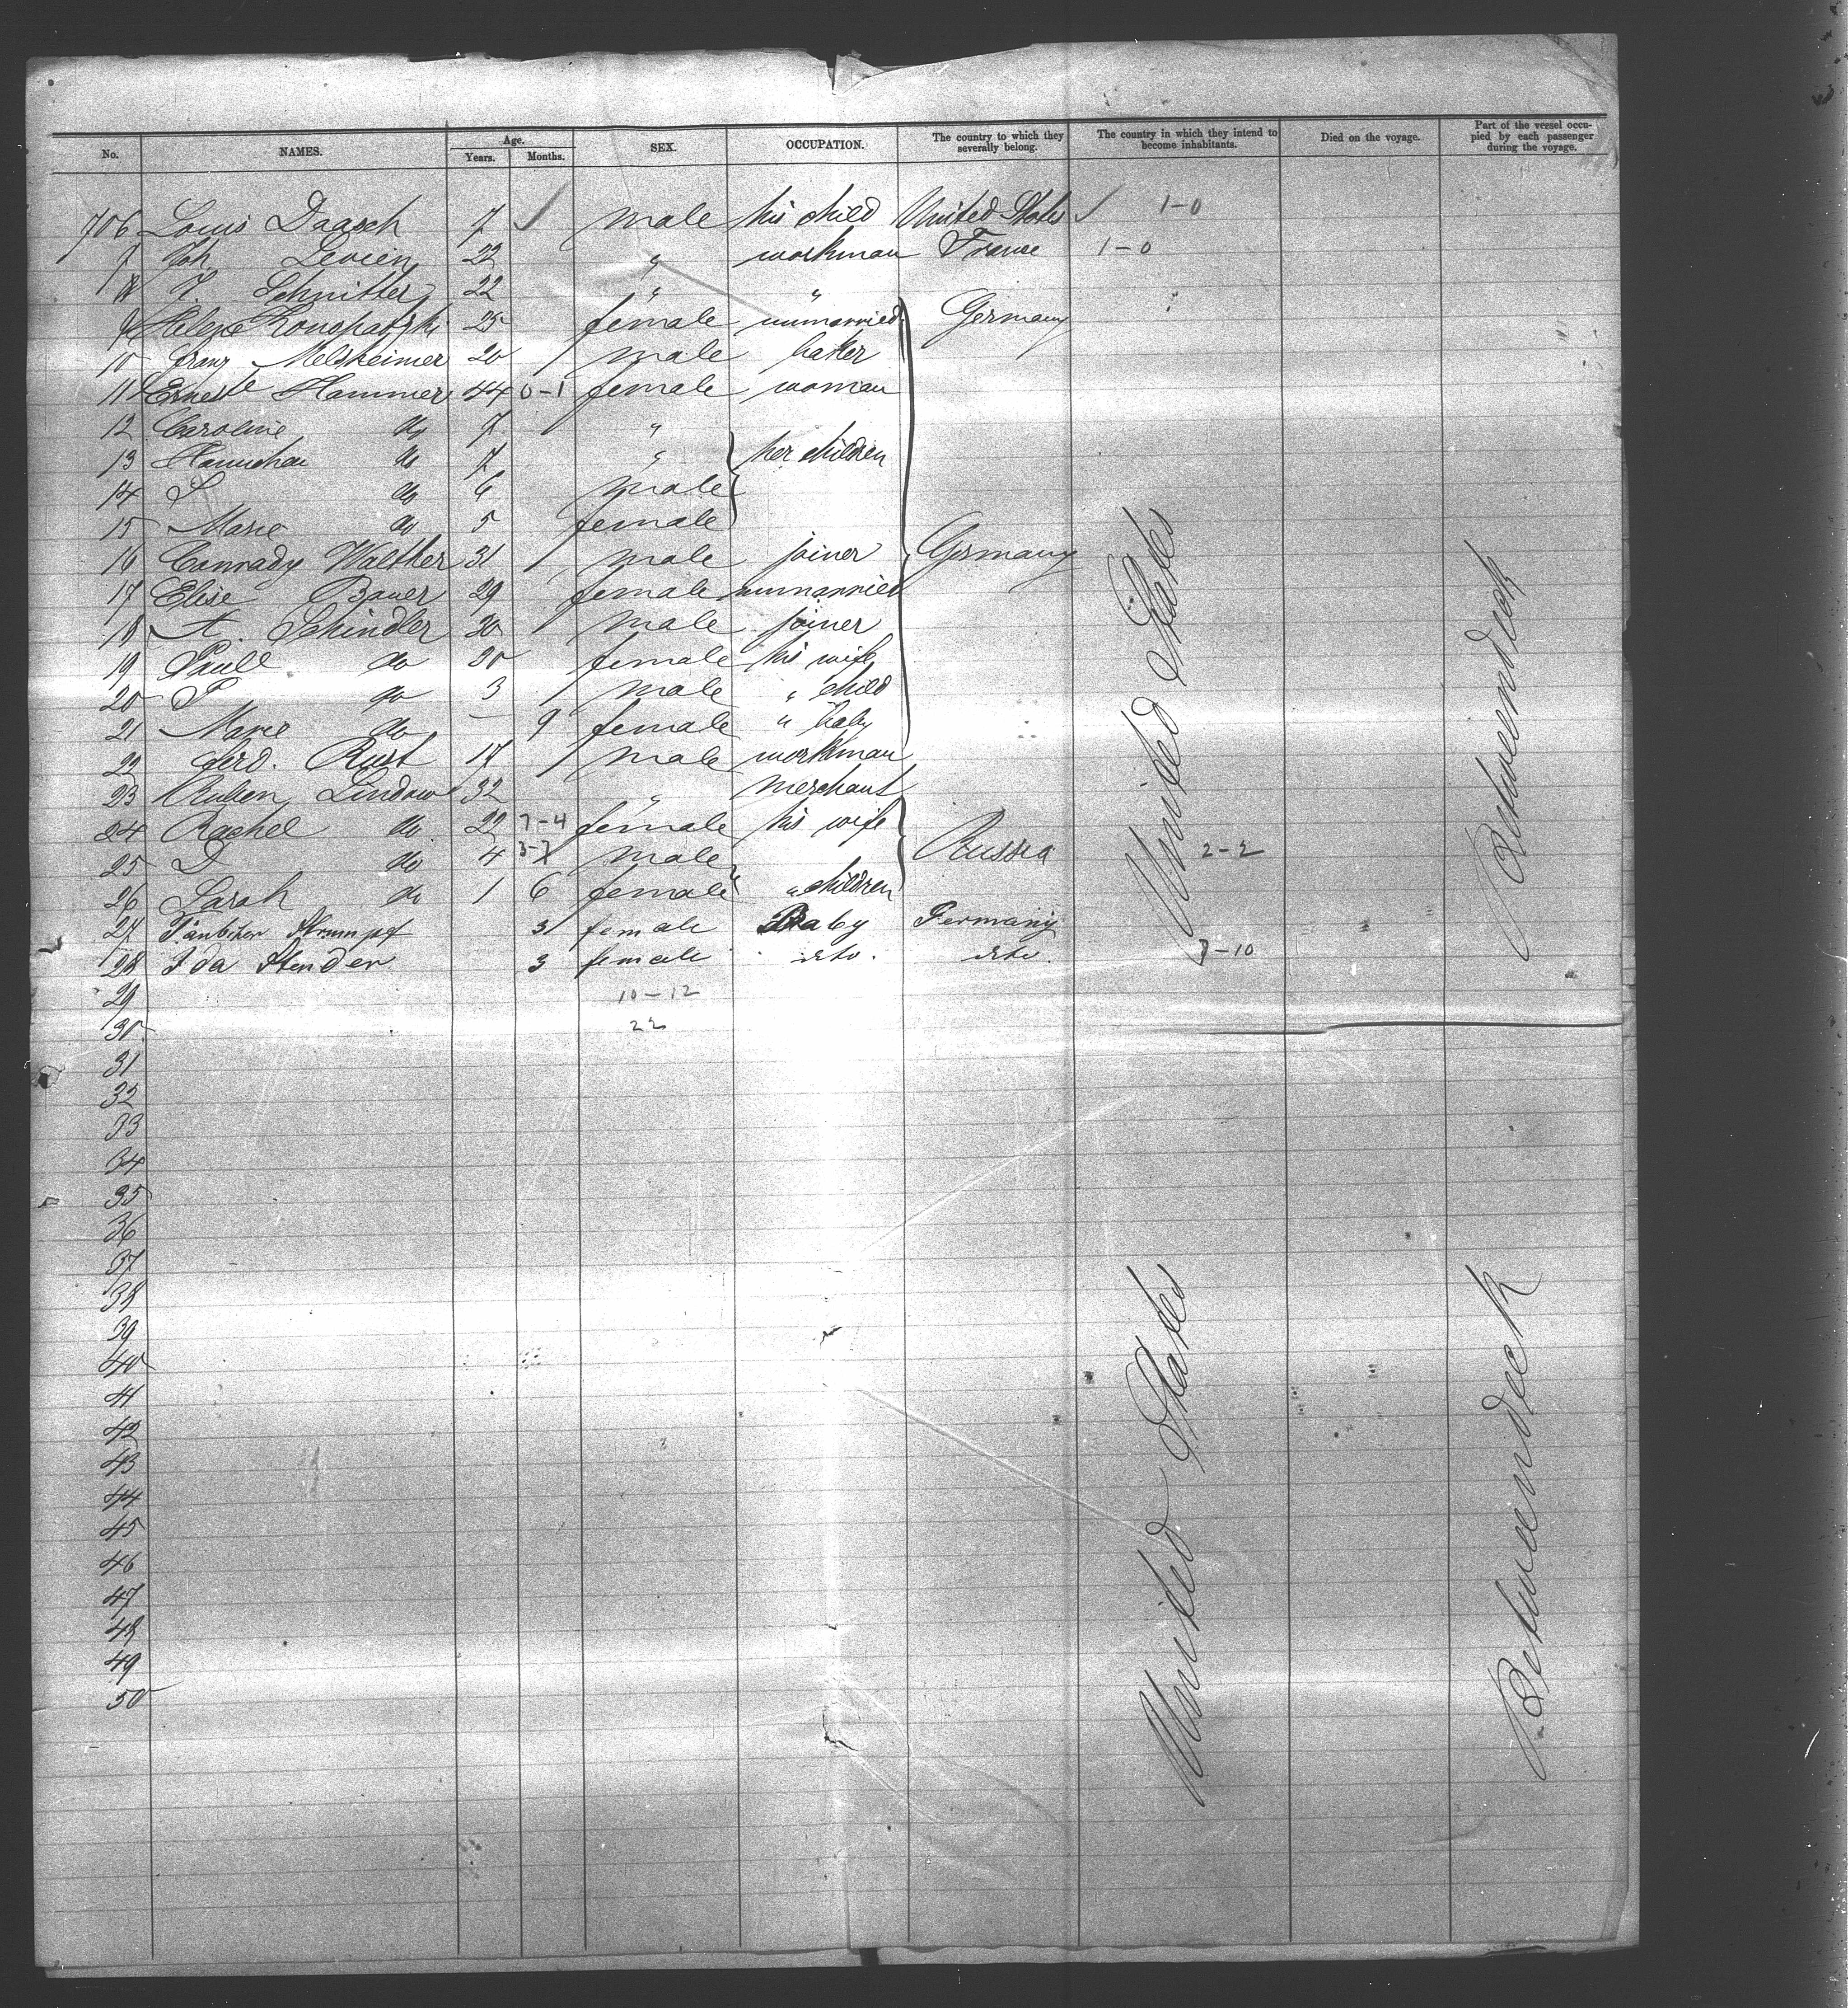 No. NAMES. Age. Years. Months. SEX. OCCUPATION. The country to which they severally belong. The country in which they intend to become inhabitants. Died on the voyage. Part of the vessel occupied by each passenger during the voyage.
706 Louis Daasch 7 male his child United States 1-0
7 Joh. Levien 22 " workman France 1-0
8 F. Schnitter 22 " "
9 Helene 25 female unmarried Germany
10 Franz Melsheimer 20 male baker
11 Ernest Hammer 44 0-1 female woman
12 Caroline do 7 "
13 do 7 " her children
14 S do 6 male
15 Marie do 5 female
16 Conrady Walther 31 male joiner Germany
17 Elise Bauer 29 female unmarried
18 A. Schindler 30 male joiner
19 Paull do 20 female his wife
20 P do 3 male " child
21 Marie do - 9 female " baby
22 Ferd. Rust 17 male workman
23 Ruben Lindow 32 " merchant
24 Rachel do 22 7-4 female his wife
25 D do 4 3-7 male Russia 2-2
26 Sarah do 1 6 female " children
27 Strumpf 3 female Baby Germany
28 Ida Stender 3 female dto. dto. 7-10
29 10-12
30 22
31
32
33
34
35
36
37
38
39
40
41
42
43
44
45
46
47
48
49
50
United States
Betweendeck
United States
Betweendeck